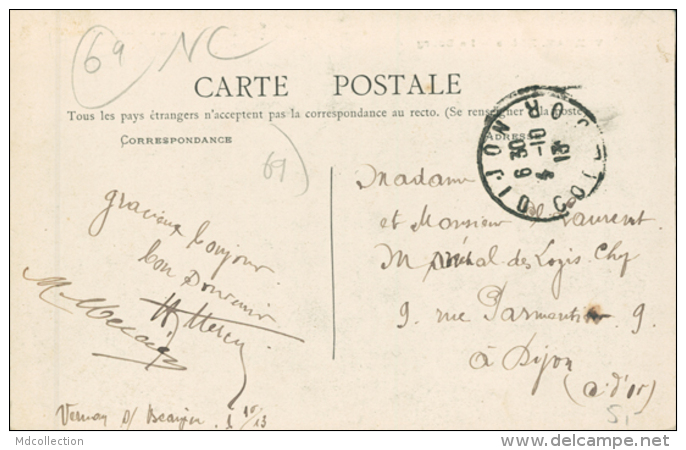 69 NC
CARTE POSTALE
Tous les pays étrangers n'acceptent pas la correspondance au recto. (Se renseigner à la poste)
CORRESPONDANCE
ADRESSE
69
DIJON
COTE D'OR
6 30
4 - 10
13
gracieux bonjour
bon souvenir
Madame
et Monsieur Laurent
Mal des Logis Chef
9. rue Parmentier 9.
à Dijon
(C. d'or)
s/ 10 13
Mdcollection
www.delcampe.net